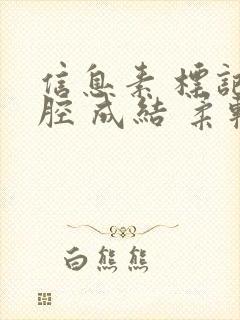 信息素 標記
腔 成結 柔軟
白熊熊